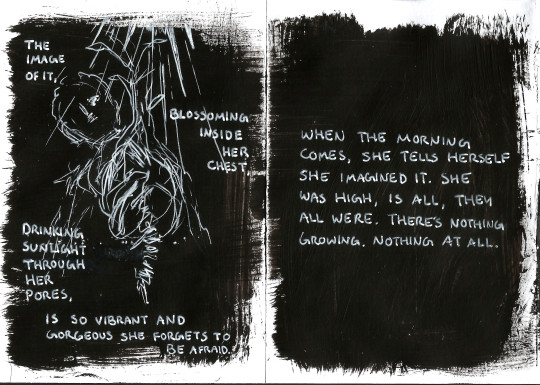 THE
IMAGE
OF IT,
BLOSSOMING
INSIDE
HER
CHEST
DRINKING
SUNLIGHT
THROUGH
HER
PORES,
IS SO VIBRANT AND
GORGEOUS SHE FORGETS TO
BE AFRAID.
WHEN THE MORNING
COMES, SHE TELLS HERSELF
SHE IMAGINED IT. SHE
WAS HIGH, IS ALL, THEY
ALL WERE. THERE'S NOTHING
GROWING. NOTHING AT ALL.